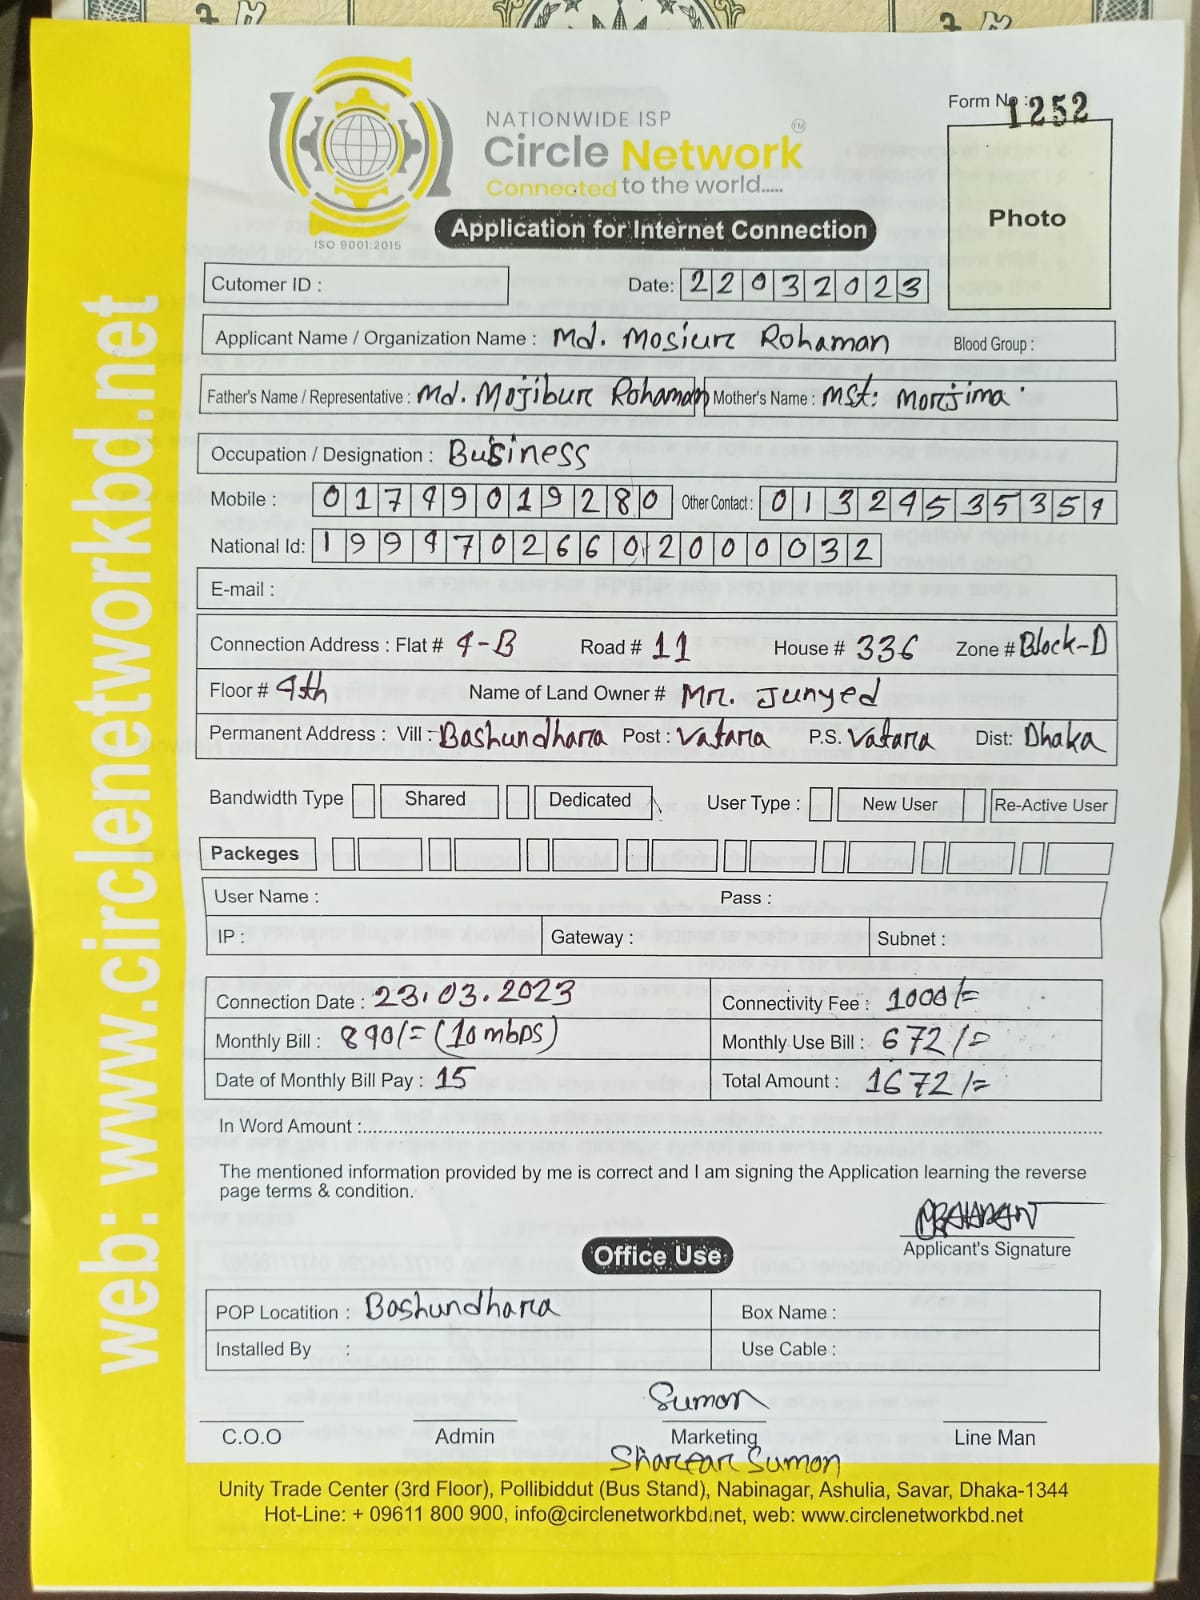 NATIONWIDE ISP
Circle Network TM
Connected to the world.....
ISO 9001:2015
Form No : 1252
Photo
Application for Internet Connection
Cutomer ID :
Date: 22032023
Applicant Name / Organization Name : Md. Mosiur Rohaman Blood Group :
Father's Name / Representative : Md. Mojibur Rohaman Mother's Name : Mst: Morjima
Occupation / Designation : Business
Mobile : 01749019280 Other Contact : 01324535354
National Id: 19947026602000032
E-mail :
Connection Address : Flat # 4-B Road # 11 House # 336 Zone # Block-D
Floor # 4th Name of Land Owner # Mr. Junyed
Permanent Address : Vill : Bashundhara Post : Vatara P.S. Vatara Dist: Dhaka
Bandwidth Type Shared Dedicated User Type : New User Re-Active User
Packeges
User Name : Pass :
IP : Gateway : Subnet :
Connection Date : 23.03.2023 Connectivity Fee : 1000/=
Monthly Bill : 890/= (10 mbps) Monthly Use Bill : 672/=
Date of Monthly Bill Pay : 15 Total Amount : 1672/=
In Word Amount :
The mentioned information provided by me is correct and I am signing the Application learning the reverse
page terms & condition.
Applicant's Signature
Office Use
POP Locatition : Bashundhara Box Name :
Installed By : Use Cable :
Sumon
C.O.O Admin Marketing Line Man
Sharear Sumon
Unity Trade Center (3rd Floor), Pollibiddut (Bus Stand), Nabinagar, Ashulia, Savar, Dhaka-1344
Hot-Line: + 09611 800 900, info@circlenetworkbd.net, web: www.circlenetworkbd.net
web: www.circlenetworkbd.net